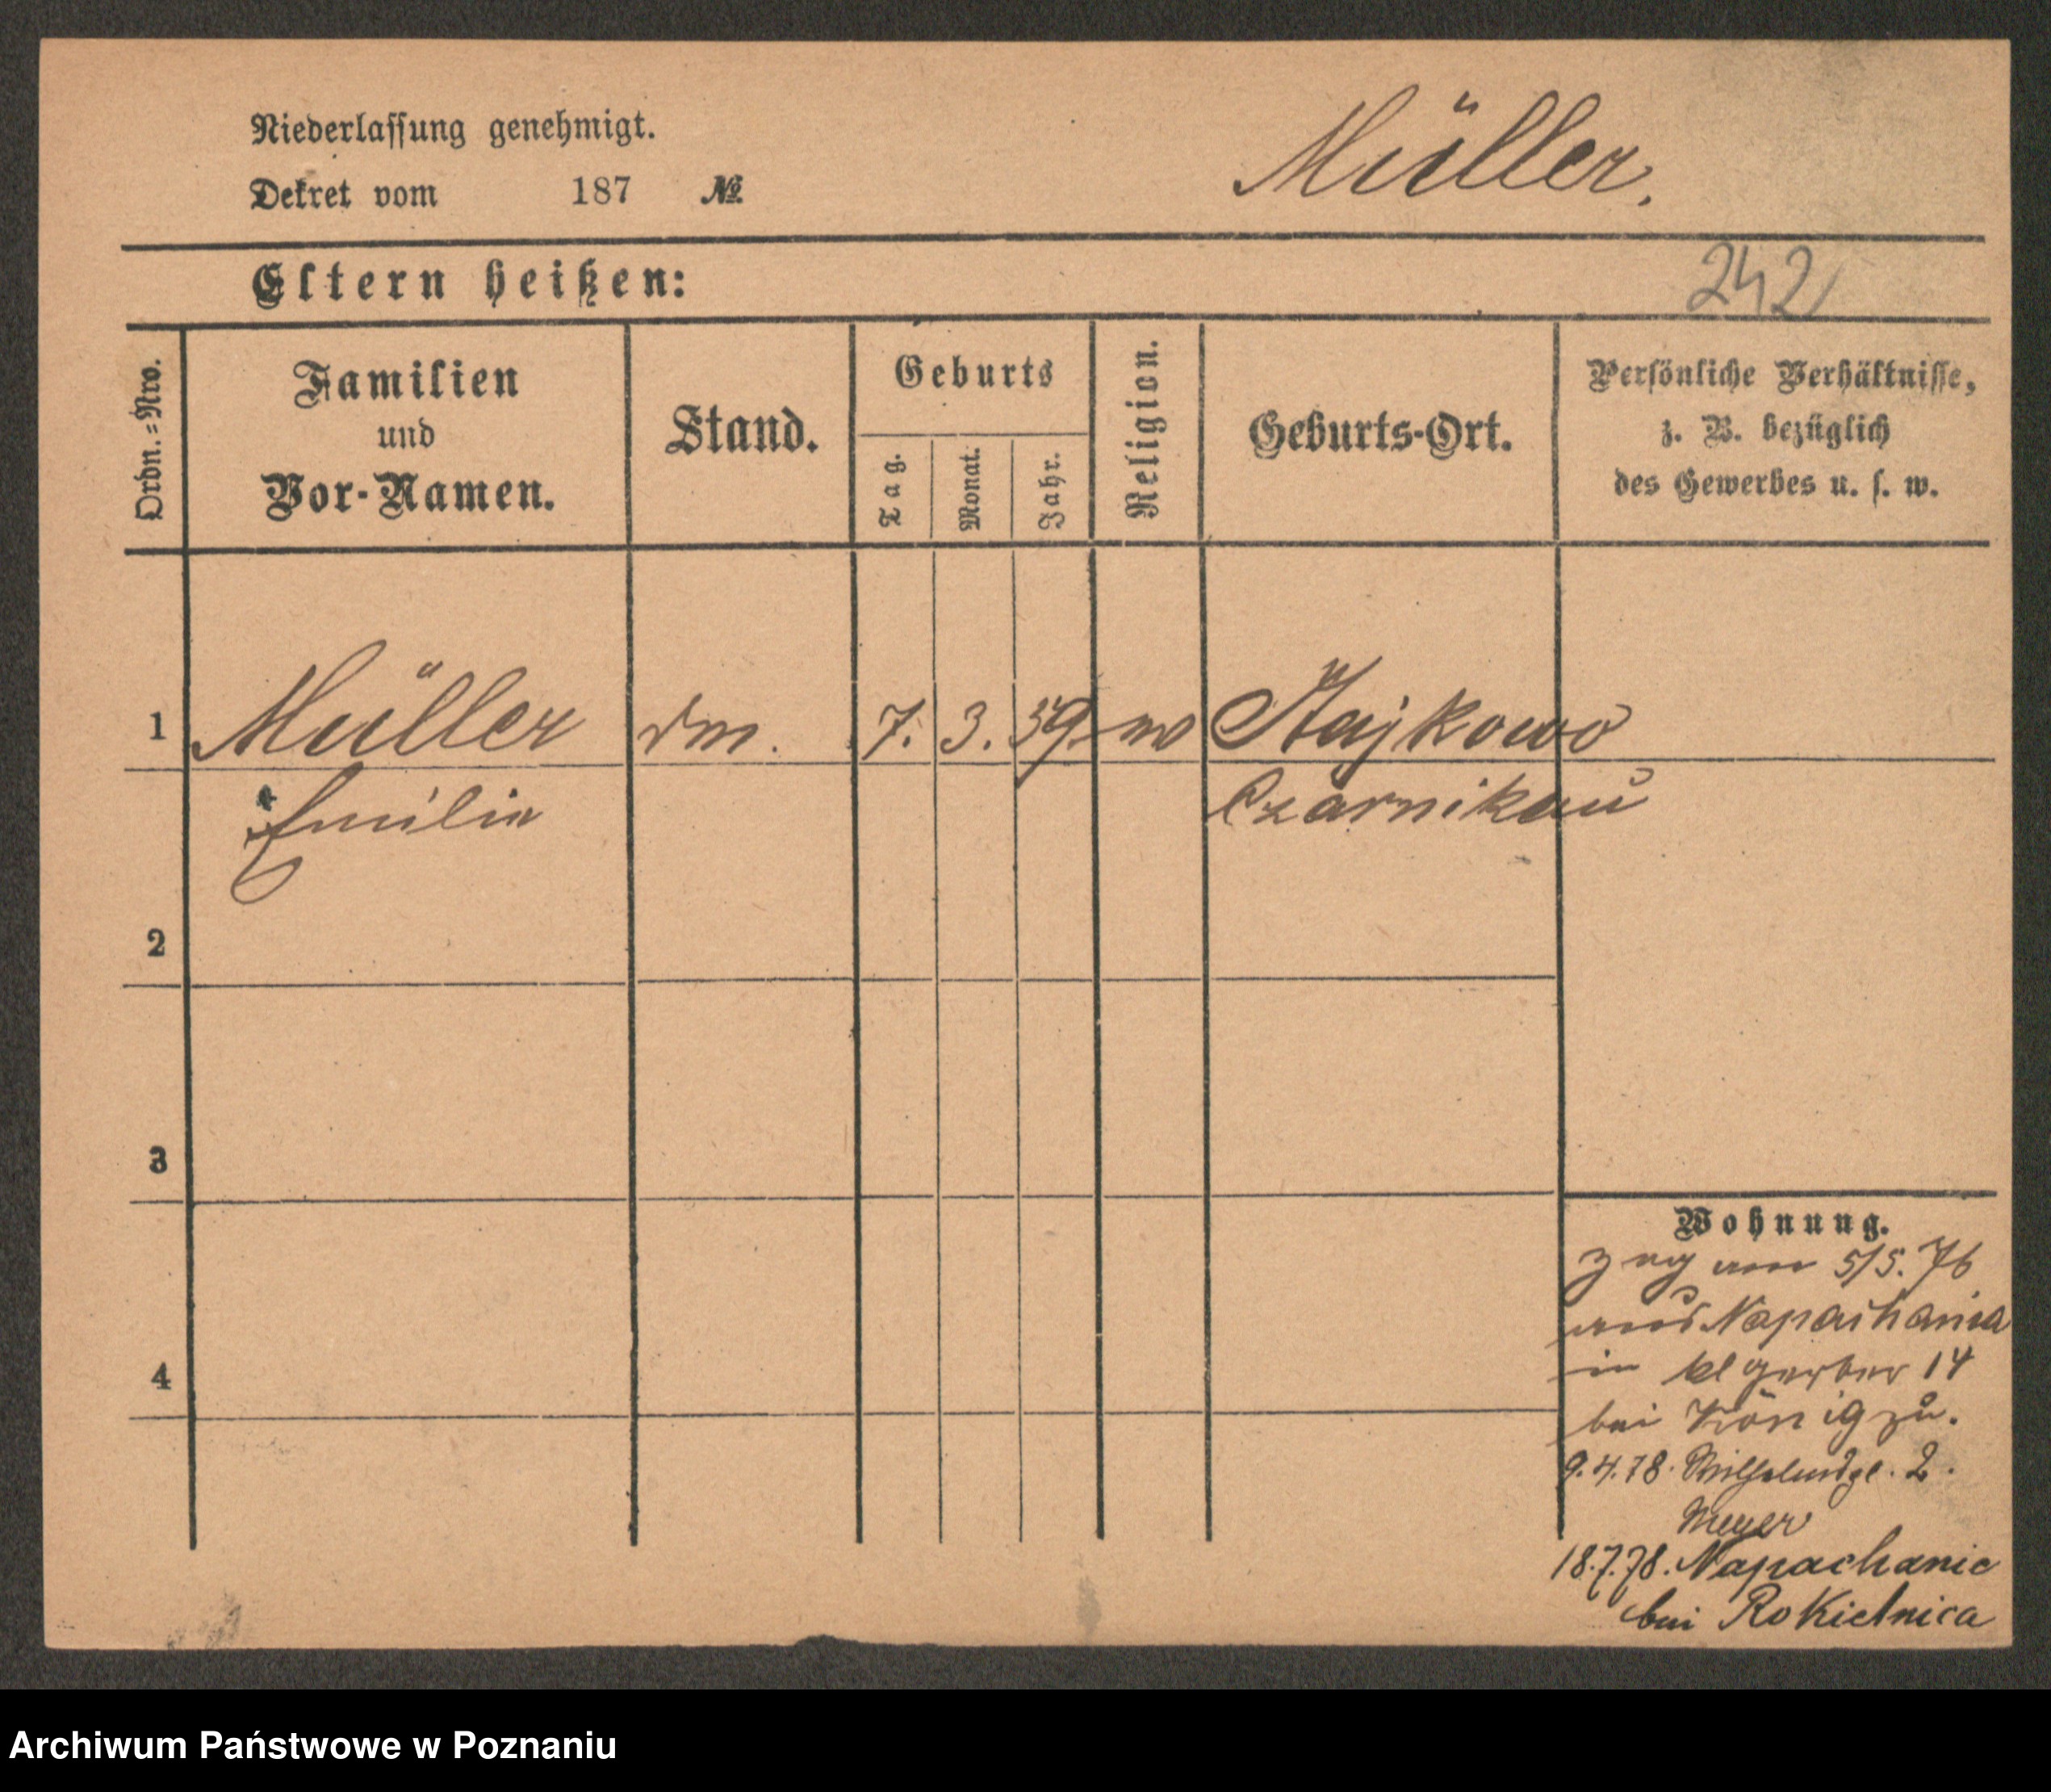 Niederlassung genehmigt.
Müller.
Dekret vom 187 №
Eltern heißen:
242
Ordn.=Nro.
Familien
und
Vor-Namen.
Stand.
Geburts
Tag.
Monat.
Jahr.
Religion.
Geburts-Ort.
Persönliche Verhältnisse,
z. B. bezüglich
des Gewerbes u. s. w.
1 Müller 7. 3. 59
Emilie Czarnikau
2
3
4
Wohnung.
zog am 5/5. 76
aus Napachania
in kl Gerber 14
bei König zu.
9.4.78. Wilhelmspl. 2.
Meyer
18.7.78. Napachanie
bei Rokietnica
Archiwum Państwowe w Poznaniu